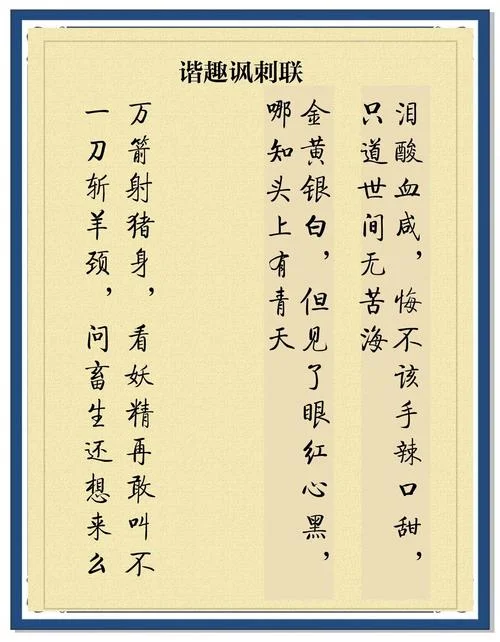 谐趣讽刺联
泪酸血咸，悔不该手辣口甜，
只道世间无苦海
金黄银白，但见了眼红心黑，
哪知头上有青天
万箭射猪身，看妖精再敢叫不
一刀斩羊颈，问畜生还想来么